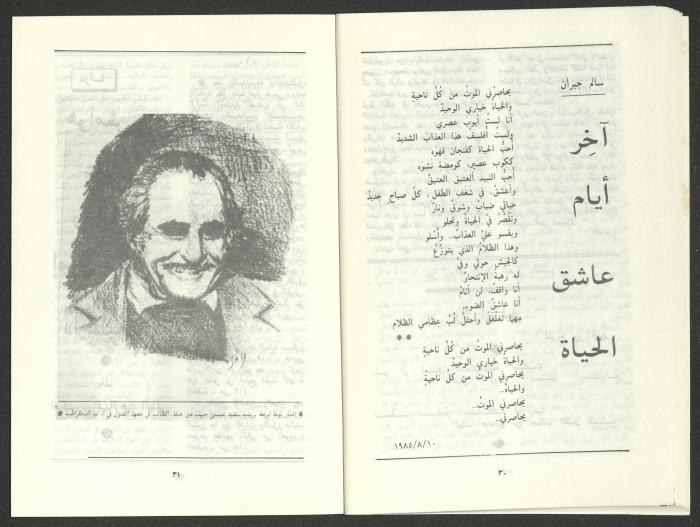 سالم جبران
آخِر
أيام
عاشق
الحياة
يحاصرُني الموتُ من كُلِّ ناحيةٍ
والحياةُ خياري الوحيدْ
أنا لستُ أيوب عصري
ولستُ أفلسِف هذا العذابَ الشديدْ
أُحبُّ الحياةَ كفنجان قهوه
ككوب عصيرٍ، كومضة نشوه
أُحبُّ النبيذَ العتيق العتيقْ
وأعشقُ، في شغف الطفل، كلَّ صباحٍ جديدْ
حياتي ضبابٌ وشوقٌ ونارْ
وتَقْصُرُ فيَّ الحياةُ وتحلو
ويقسو عليَّ العذابُ.. وأسْلو
وهذا الظلامُ الذي يتوزَّعُ
كالجيشِ حولي وفيَّ
له رهبةُ الإنتحارْ
أنا واقفٌ، لن أنامْ
أنا عاشقُ الضوءِ،
مهما تَغَلْغَلَ واحتلَّ لُبَّ عظامي الظلام
**
يحاصرني الموتُ من كُلِّ ناحيةٍ
والحياةُ خياري الوحيدْ
يحاصرني الموتُ من كلِّ ناحيةٍ
والحياةُ..
يحاصرني الموتُ..
يحاصرني..
١٩٨٥/٨/١٠
٣٠
لوحة بريشة سعيد
٣١